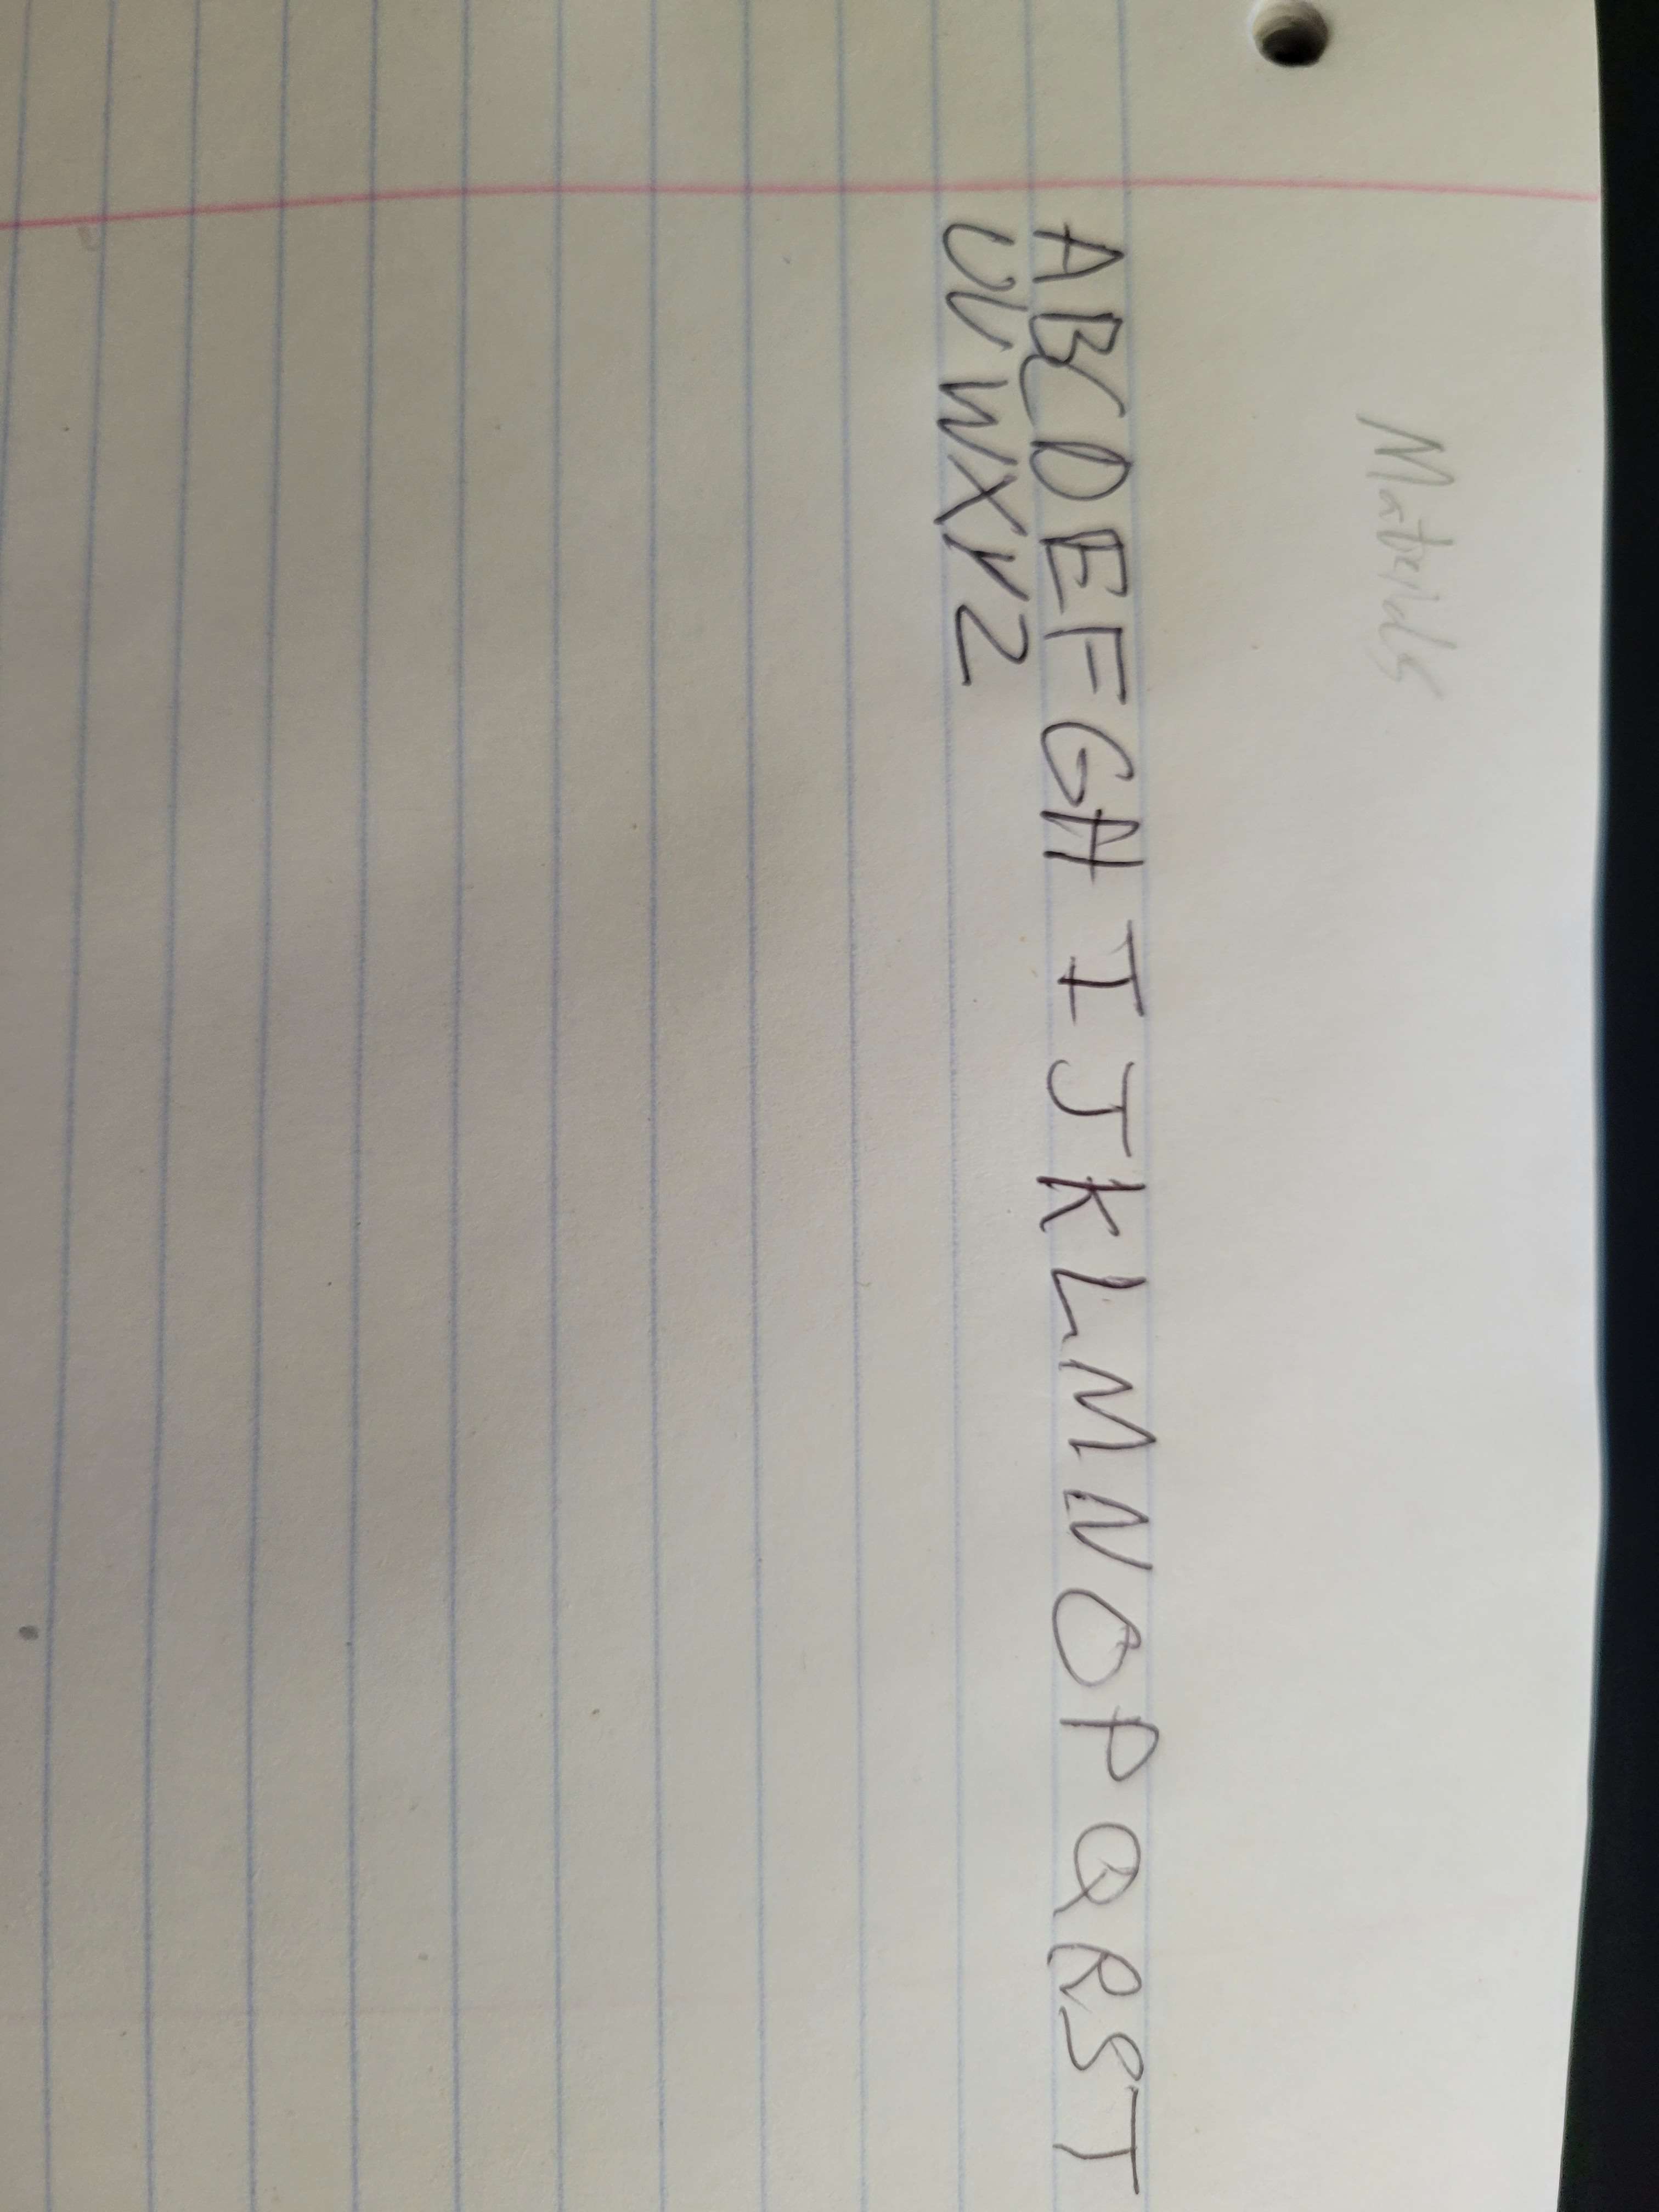 Materials
ABCDEFGHIJKLMNOPQRST
UVWXYZ